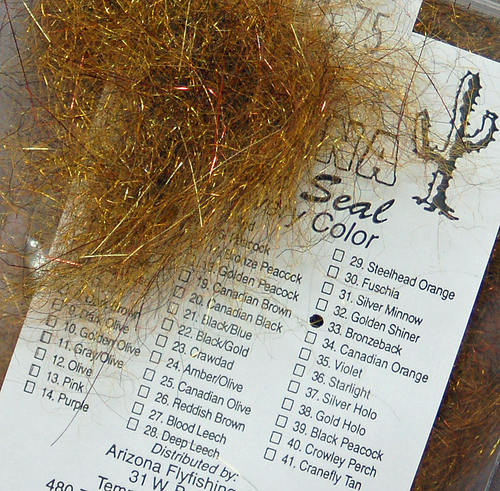 75
Seal
Color
Peacock
Bronze Peacock
18. Golden Peacock
19. Canadian Brown
20. Canadian Black
21. Black/Blue
22. Black/Gold
23. Crawdad
24. Amber/Olive
25. Canadian Olive
26. Reddish Brown
27. Blood Leech
28. Deep Leech
Brown
9. Dark Olive
10. Golden Olive
11. Gray/Olive
12. Olive
13. Pink
14. Purple
29. Steelhead Orange
30. Fuschia
31. Silver Minnow
32. Golden Shiner
33. Bronzeback
34. Canadian Orange
35. Violet
36. Starlight
37. Silver Holo
38. Gold Holo
39. Black Peacock
40. Crowley Perch
41. Cranefly Tan
Distributed by:
Arizona Flyfishing
31 W.
480